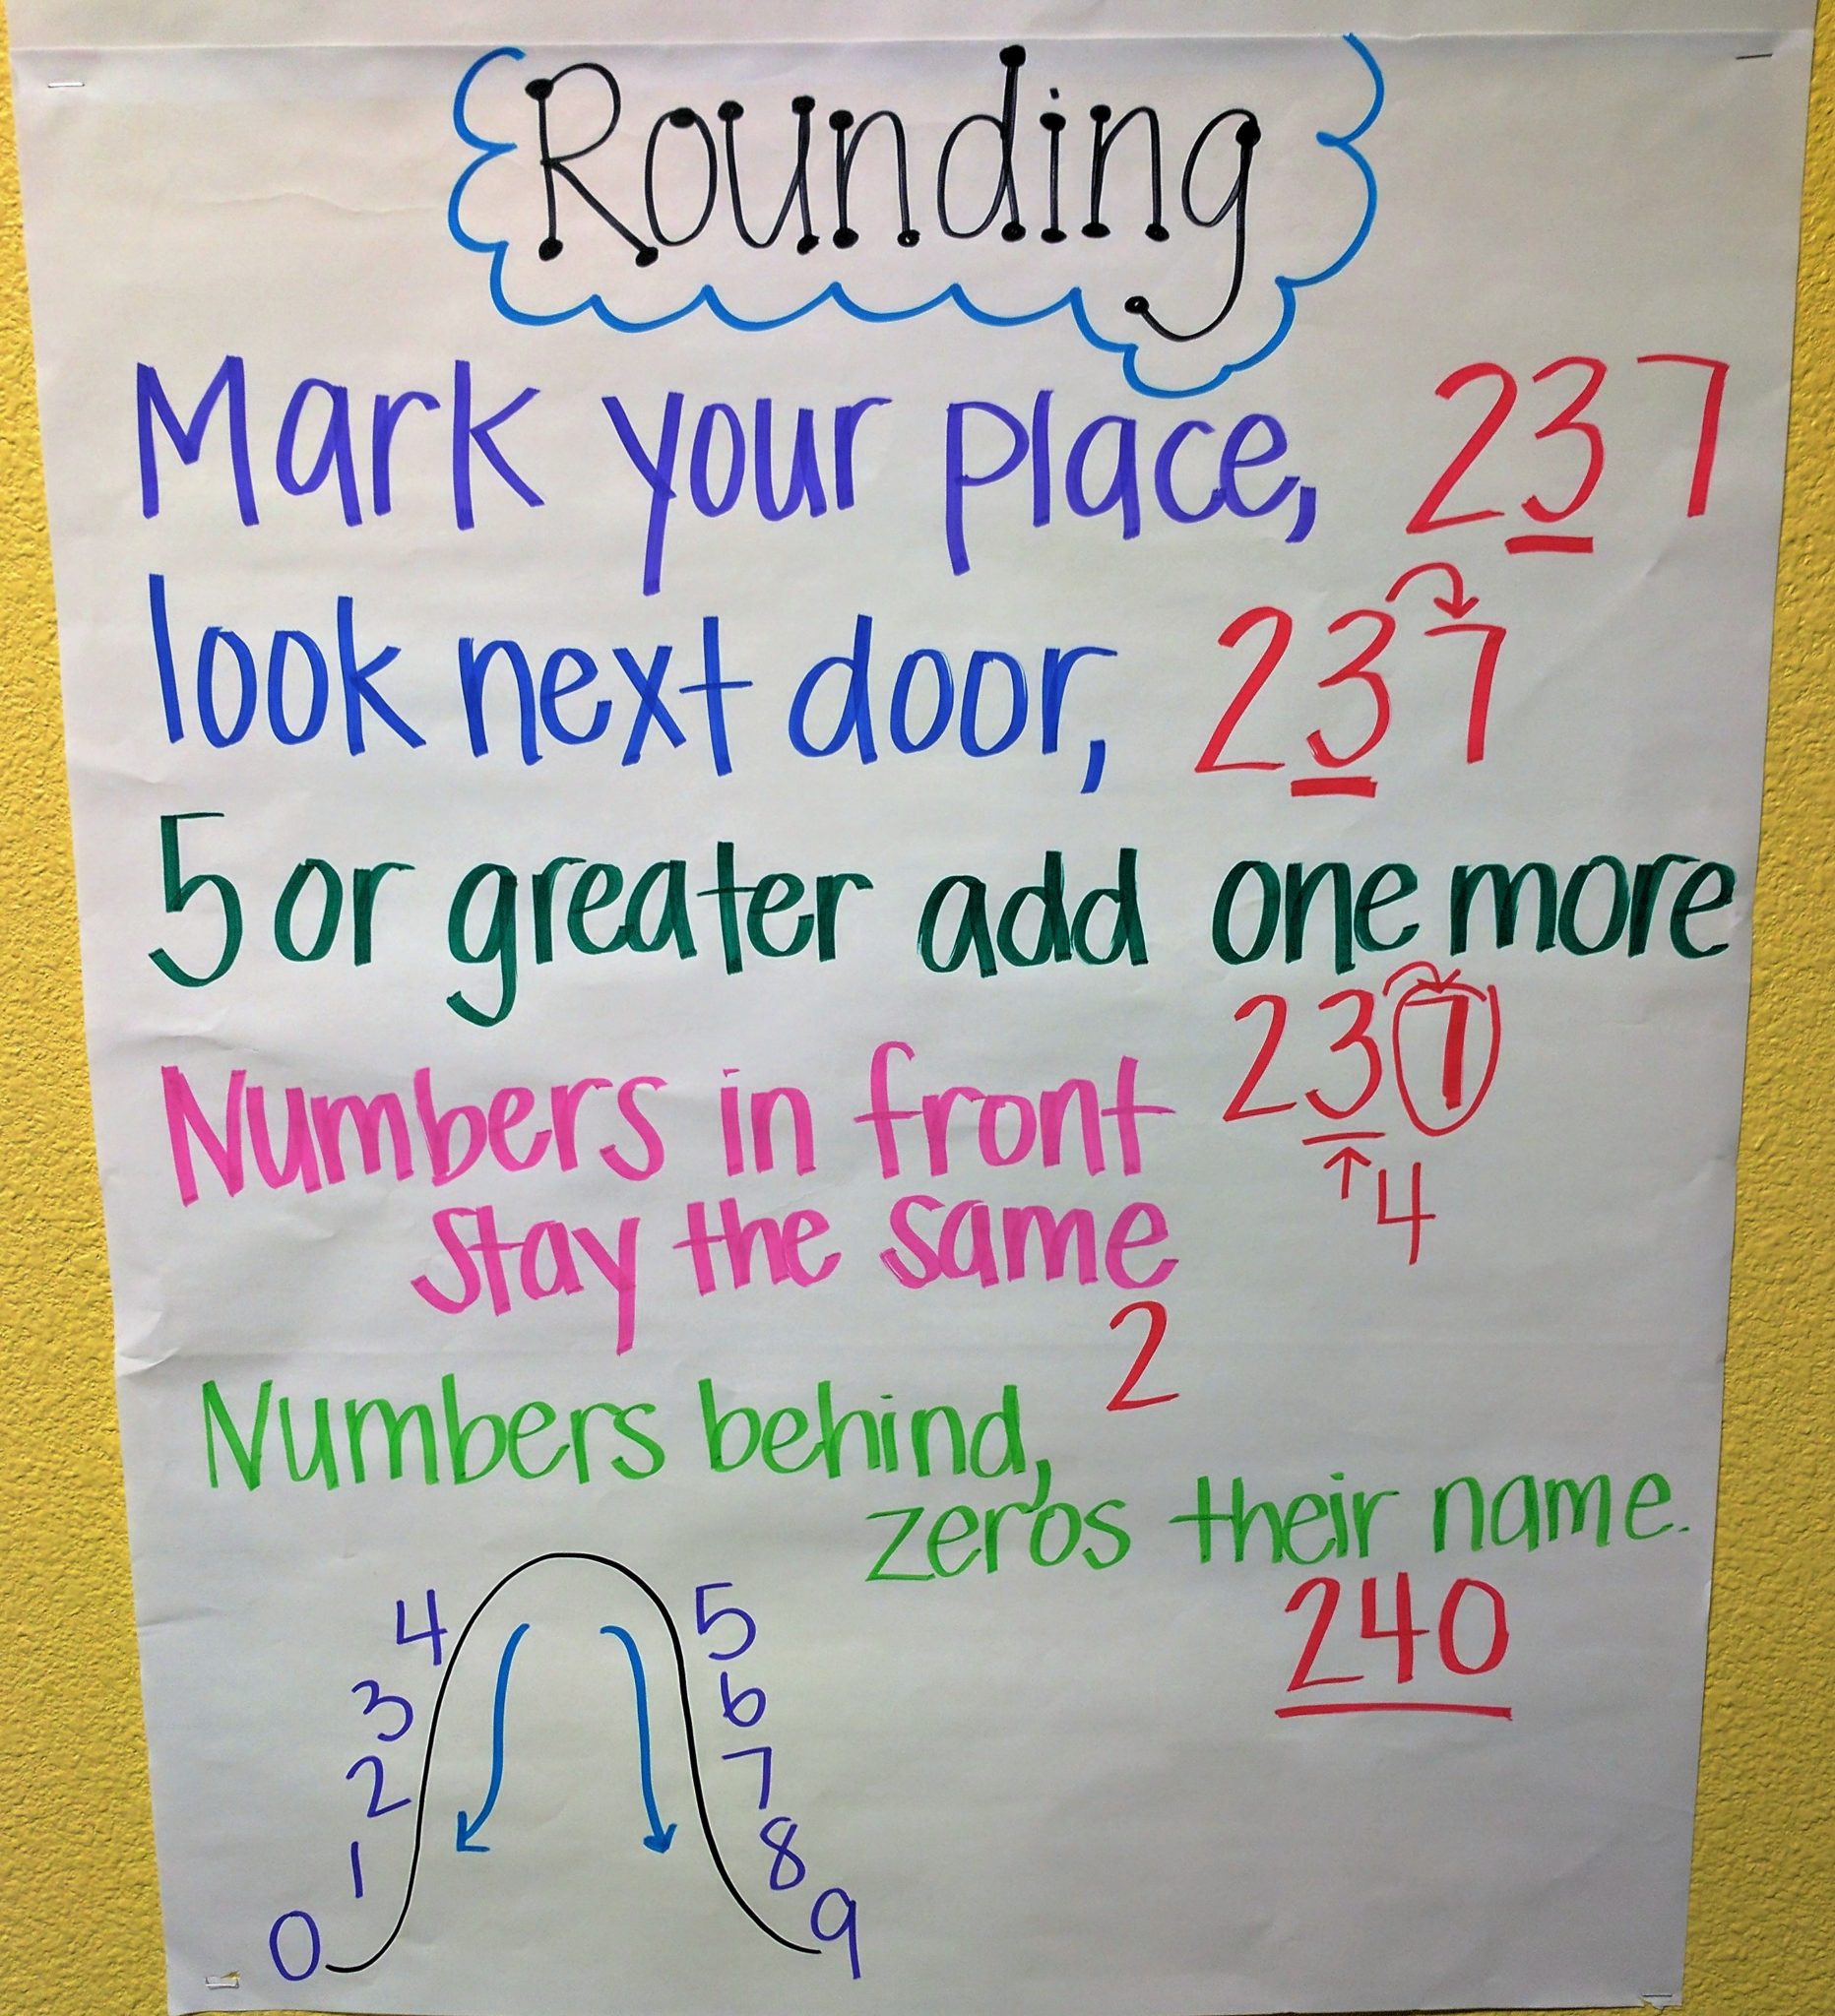 Rounding
Mark your place, 237
look next door, 237
5 or greater add one more
237
4
Numbers in front
stay the same
2
Numbers behind,
zeros their name.
240
4 5
3 6
2 7
1 8
0 9